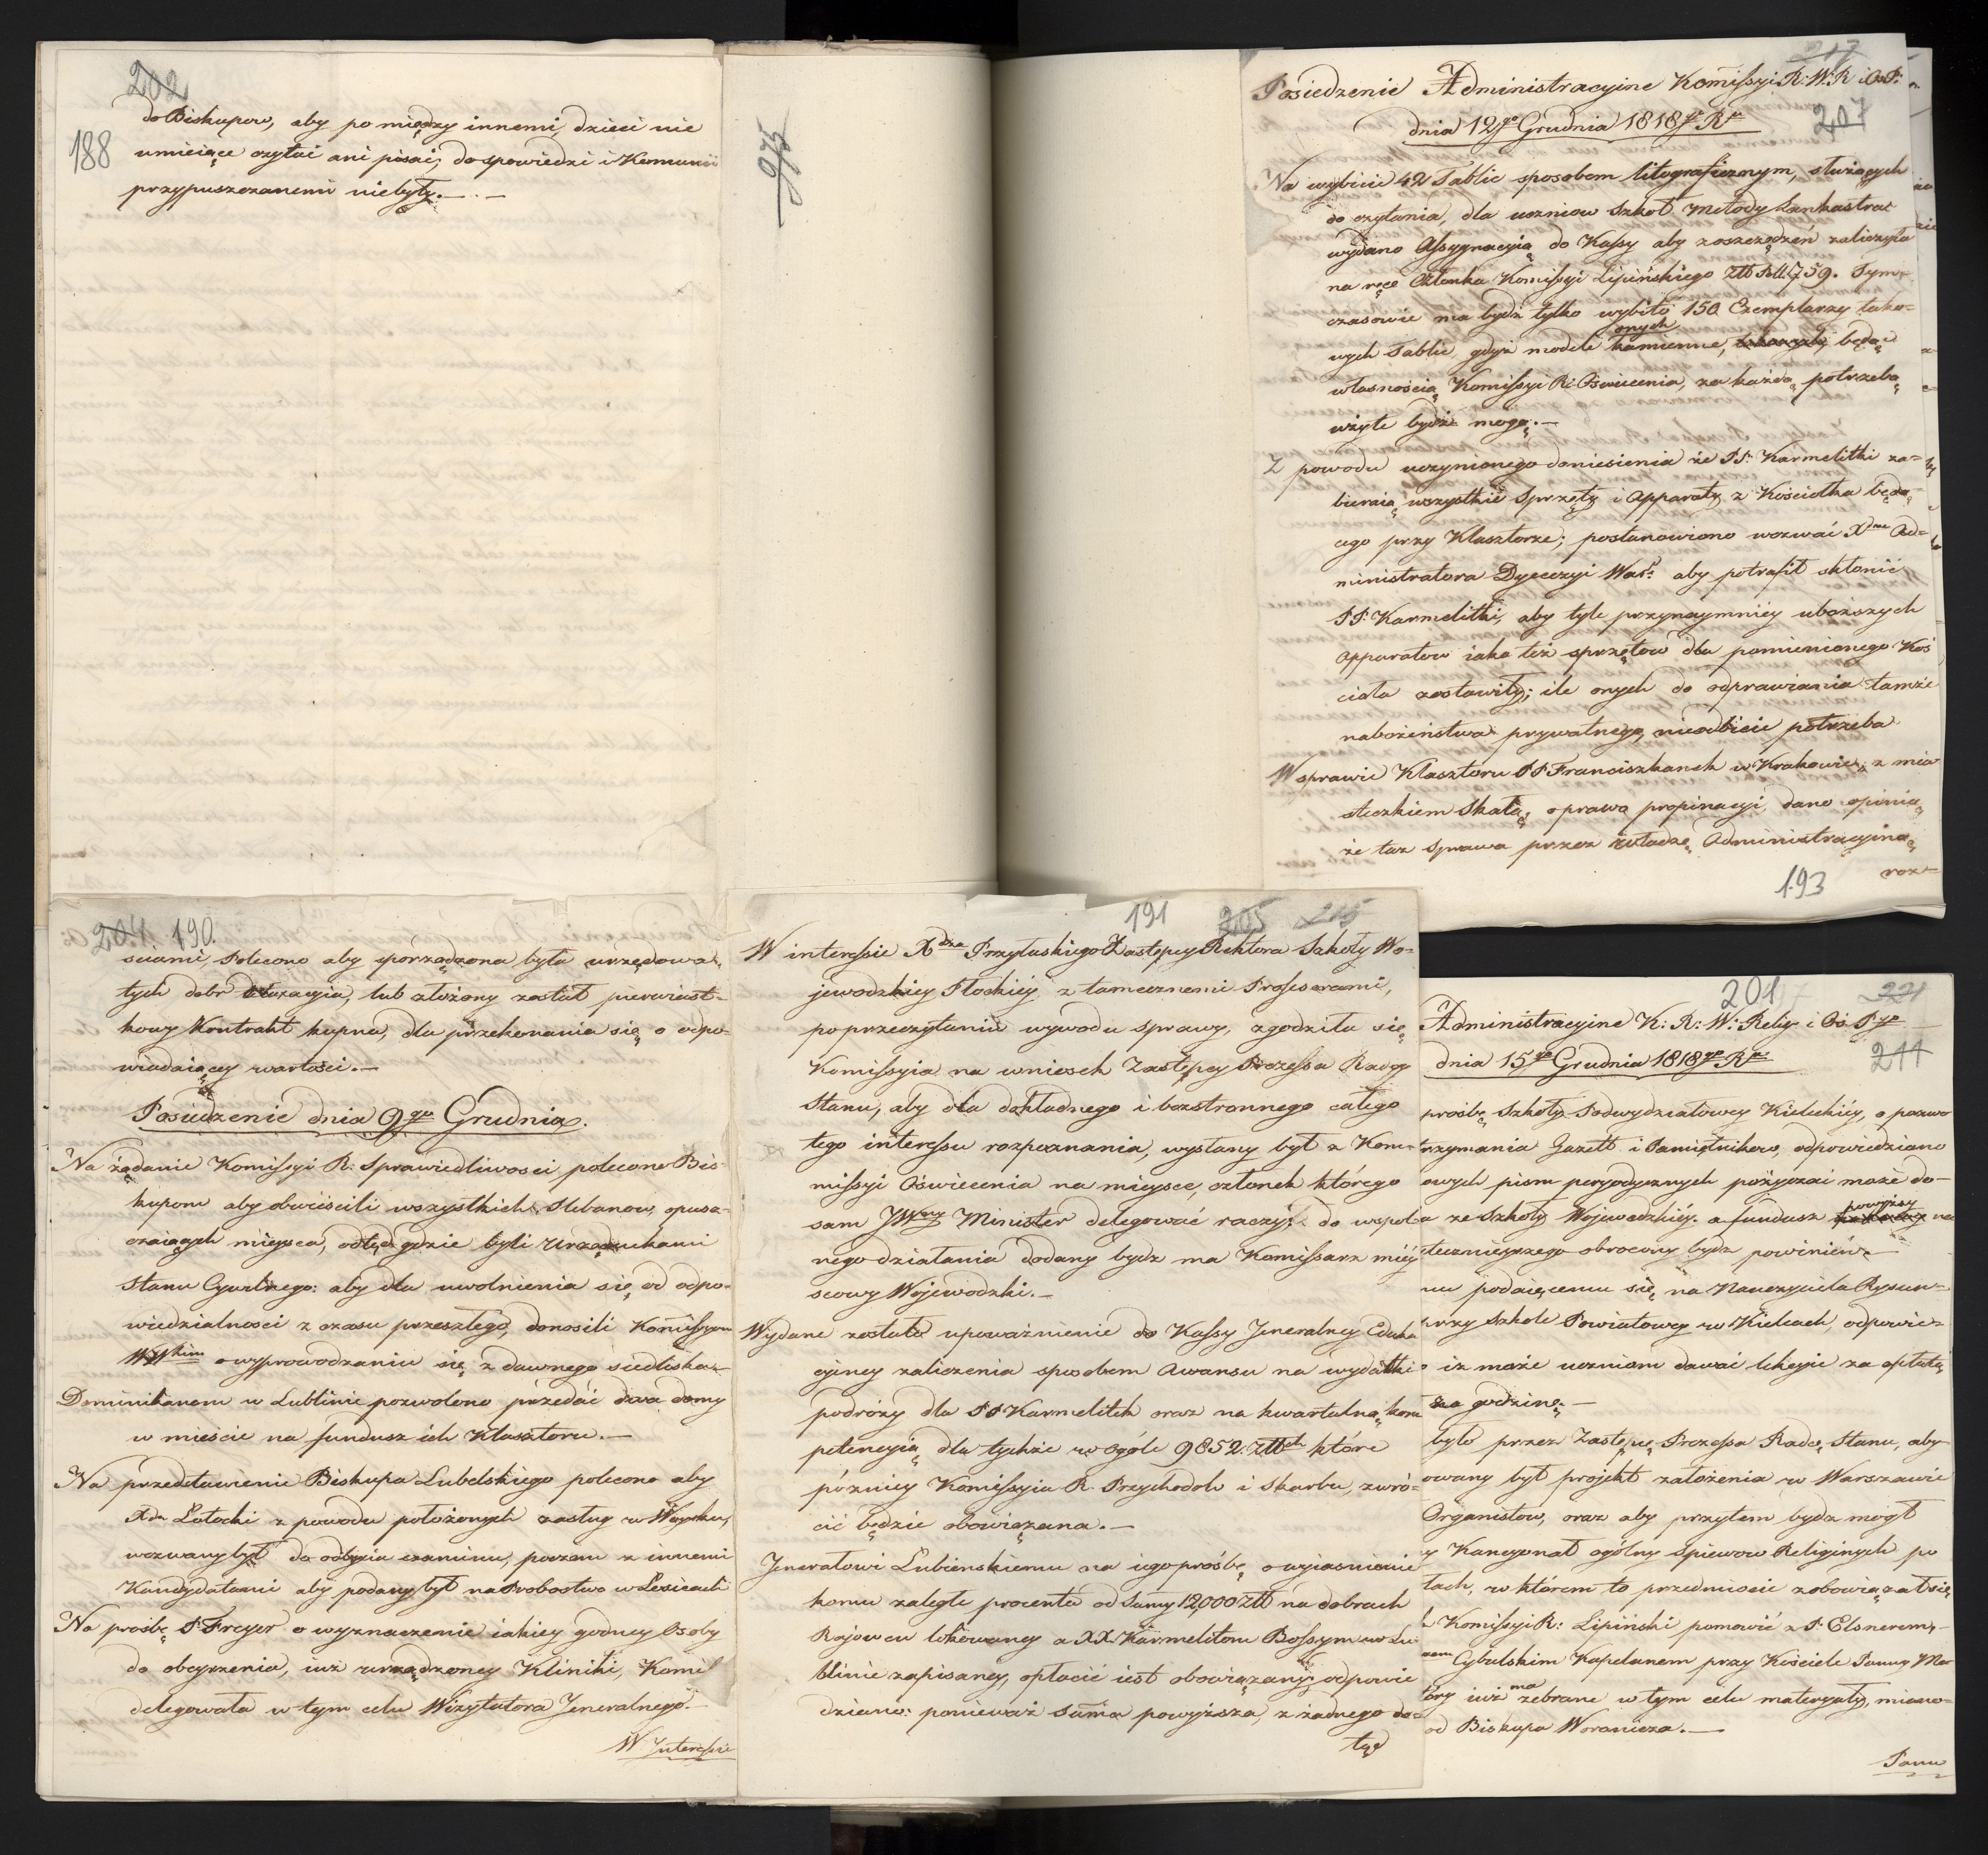 202
188
do Biskupow, aby po między innemi, dzieci nie
umieiące czytać ani pisać, do spowiedzi i Kommunii
przypuszczanemi niebyły. —
975
217
Posiedzenie Administracyine Kom̄issyi R: W: R i O: P:
dnia 12go Grudnia 1818go Rku
207
Na wybicie 42 Tablic sposobem litograficznym, służących
do czytania, dla uczniow Szkoł Metody Lankastra
wydano Assygnacyią do Kassy aby zoszczędzeń zaliczyła
na ręce Członka Komissyi Lipińskiego Złł P. 1759. Tym-
czasowie ma bydź tylko wybito 150 Exemplarzy tako-
onych
wych Tablic, gdyż modele kamienne, będąc
własnością Komissyi R: Oświecenia, za każdą potrzebą
użyte bydź mogą. —
Z powodu uczynionego doniesienia że PP: Karmelitki za=
bieraią wszystkie Sprzęty i Apparaty z Kościołka będą-
cego przy Klasztorze; postanowiono wezwać Xdza Ad=
ministratora Dyecezyi Warsz: aby potrafił skłonić
PP: Karmelitki, aby tyle przynaymniey uboższych
Apparatow iako też sprzętow dla pomienionego Koś
cioła zostawiły; ile onych do odprawiania tamże
nabożeństwa prywatnego, nieodbicie potrzeba
W sprawie Klasztoru PP Franciszkanek w Krakowie, z mia
steczkiem Skałą, o prawo propinacyi, dano opinią
że taż sprawa przez władzę Administracyiną
193 roz=
204. 190.
sciami, Polecono aby sporządzona była urzędowa
tych dobr taxacyia, lub złożony został pierwiast-
kowy Kontrakt kupna, dla przekonania się o odpo-
wiadaiącey wartości. —
Posiedzenie dnia 9go Grudnia.
Na żądanie Komissyi R: Sprawiedliwosci polecono Bis-
kupom aby obwieścili wszystkich Plebanow, opusz-
czaiących mieysca, odkąd gdzie byli Urzędnikami
Stanu Cywilnego: aby dla uwolnienia się od odpo-
wiedzialnosci z czasu przeszłego, donosili Kom̄issyom
WWkim o wyprowadzaniu się z dawnego siedliska —
Dominikanom w Lublinie pozwolono przedać dwa domy
w mieście na fundusz ich Klasztoru. —
Na przedstawienie Biskupa Lubelskiego polecono aby
Xdz Łotocki z powodu położonych zasług w Woysku,
wezwany był do odbycia examinu, poczem z innemi
Kandydatami aby podany był na Probostwo w Łosicach
Na prośbę P. Freyer o wyznaczenie iakiey godney Osoby
do obeyrzenia, iuż urządzoney Kliniki, Komis
delegowała w tym celu Wizytatora Jeneralnego. —
W Interessie
191 205 215
W interessie Xdza Przyłuskiego Zastępcy Rektora Szkoły Wo=
jewodzkiey Płockiey, z tamecznemi Professorami,
po przeczytaniu wywodu sprawy, zgodziła się
Komissyia na wniosek Zastępcy Prezessa Radcy
Stanu, aby dla dokładnego i bezstronnego całego
tego interessu rozpoznania, wysłany był z Kom=
missyi Oświecenia na mieysce, członek którego
sam JWny Minister delegować raczył: do wspol
nego działania dodany bydz ma Komissarz miéy
scowy Wojewodzki. —
Wydane zostało upoważnienie do Kassy Jeneralney Eduka
cyiney zaliczenia sposobem Awansu na wydatki
podróży dla PP Karmelitek oraz na kwartalną kom
petencyią dla tychże w ogóle 9852 złłch które
pózniey Komissyia R. Przychodow i Skarbu, zwró=
cić będzie obowiązana. —
Jenerałowi Łubienskiemu na iego prośbę o wyiaśnienie
komu zaległe procenta od Sumy 12,000 Złł na dobrach
Rajowcu lokowaney a XX Karmelitom Bossym w Lu
blinie zapisaney, opłacić iest obowiązany; odpowie
dziano: ponieważ Sum̄a powyższa, z żadnego do=
tąd
201 221
Administracyine K: R: W: Relig i Oś Pgo
dnia 15go Grudnia 1818go Rku
211
prośbę Szkoły Podwydziałowey Kieleckiéy, o pozwo
trzymania Gazett i Pamiętnikow, odpowiedziano
owych pism peryodycznych pożyczać może do-
powyższy
a ze Szkoły Wojewodzkiéy. a fundusz na
teczniejszego obrocony bydz powinién. —
mu podaiącemu się, na Nauczyciela Rysun=
przy Szkole Powiatowey w Kielcach, odpowie=
iż może uczniom dawać lekcyie za opłatą
za godzinę. —
było przez Zastępcę Prezessa Radcę Stanu, aby
owany był projekt założenia w Warszawie
Organistow, oraz aby przytem bydz mogł
y Kancyonał ogólny śpiewow Religijnych po
łach, w którem to przedmiocie zobowiązał się
k Komissyi R: Lipiński pomowić z P. Elsnerem,
Cybulskim Kapelanem przy Kościele Panny Mar
ma
tóry iuż zebrane w tym celu materyały, miano=
od Biskupa Woronicza. —
Panu